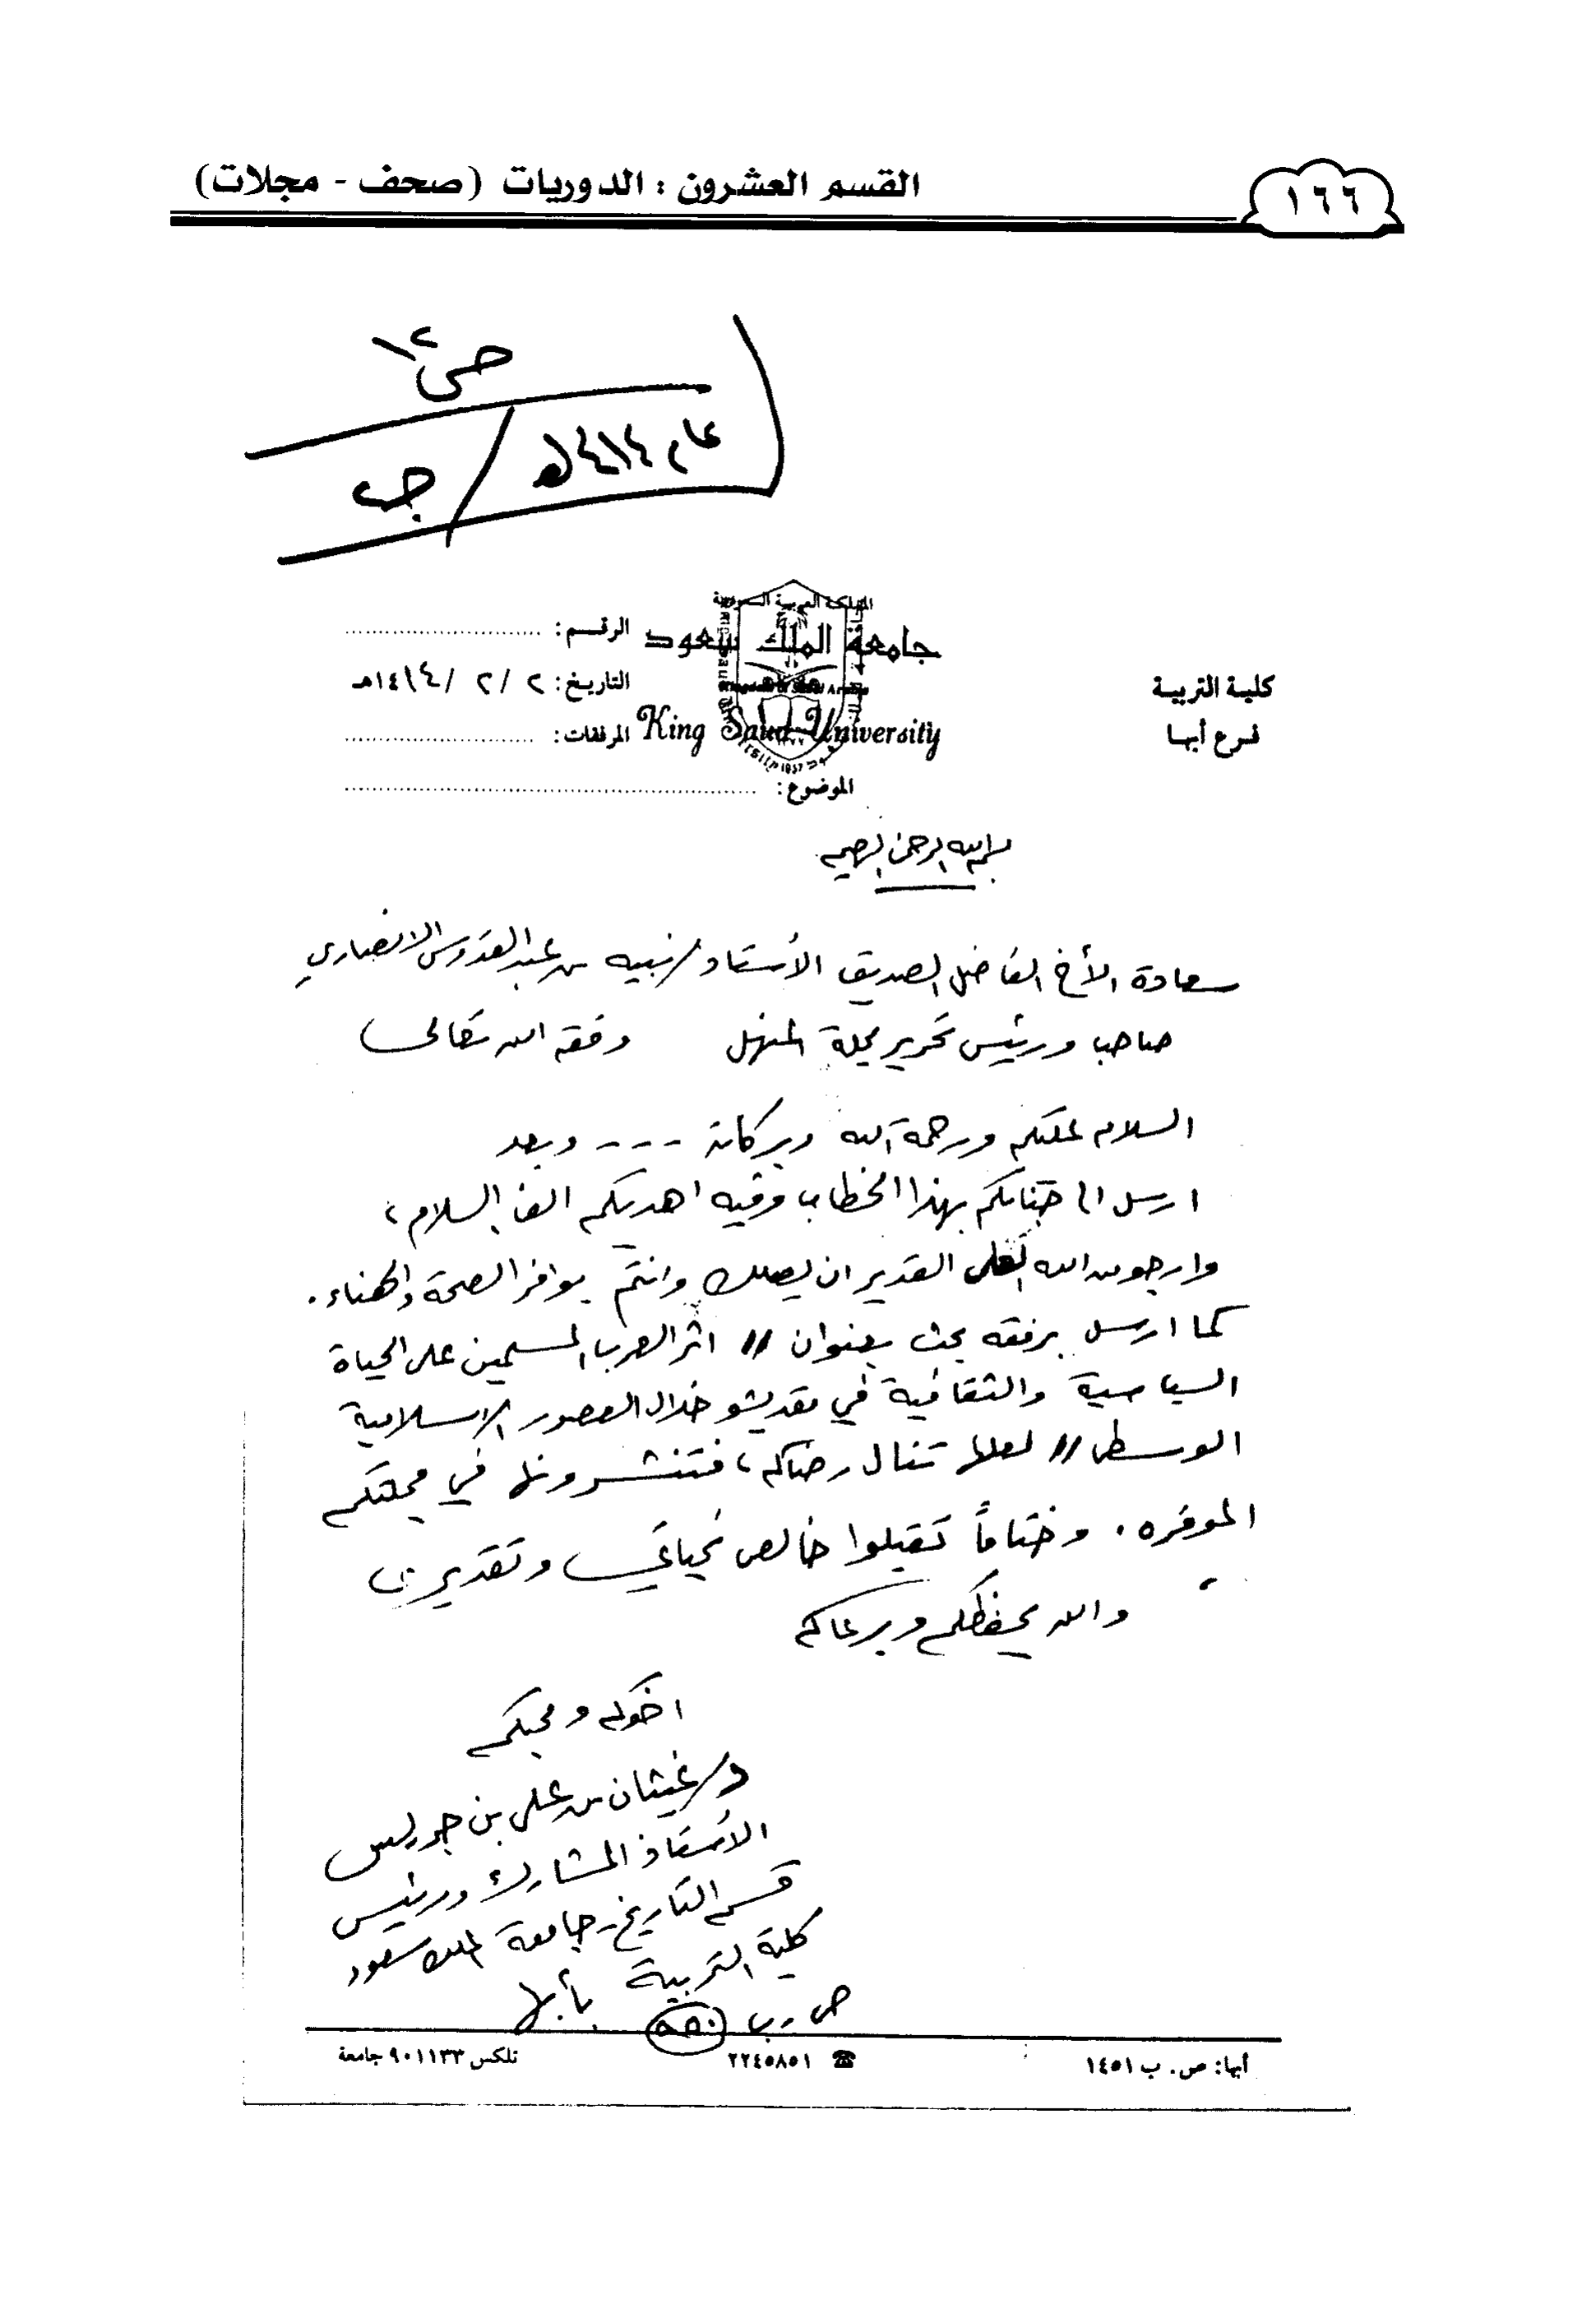 ١٦٦
القسم العشرون : الدوريات (صحف - مجلات)
ص١٢
عام ١٤١٤هـ / جـ
المملكة العربية السعودية
جامعة الملك سعود
King Saud University
كلية التربية
فرع أبها
الرقم:
التاريخ: ٢ / ٢ / ١٤١٤هـ
المرفقات:
الموضوع:
بسم الله الرحمن الرحيم
سعادة الأخ الفاضل الصديق الأستاذ / نبيه بن عبدالقدوس الانصاري
صاحب ورئيس تحرير مجلة المنهل وفقه الله تعالى
السلام عليكم ورحمة الله وبركاته - - - وبعد
ارسل الى جنابكم بهذا الخطاب وفيه اهديكم الف السلام،
وارجو من الله العلى القدير ان يصلك وانتم بوافر الصحة والهناء.
كما ارسل برفقه بحث بعنوان // اثر العرب المسلمين على الحياة
السياسية والثقافية في مقديشو خلال العصور الاسلامية
الوسطى // لعلها تنال رضاكم، فتنشرونها في مجلتكم
الموقره. وختاماً تقبلوا خالص تحياتي وتقديري
والله يحفظكم ويرعاكم
اخوكم ومحبكم
د/ غيثان بن علي بن جريس
الأستاذ المشارك ورئيس
قسم التاريخ - جامعة الملك سعود
كلية التربية بأبها
ص.ب
أبها: ص. ب ١٤٥١
☎ ٢٢٤٥٨٥١
تلكس ٩٠١١٣٣ جامعة